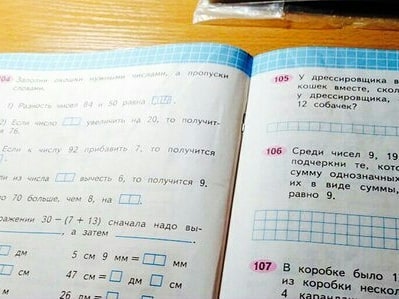 104 Заполни окошки нужными числами, а пропуски
словами.
1) Разность чисел 84 и 50 равна
2) Если число увеличить на 20, то получит-
я 76.
Если к числу 92 прибавить 7, то получится
ли из числа вычесть 6, то получится 9.
70 больше, чем 8, на .
ражении 30 − (7 + 13) сначала надо вы-
, а затем .
дм 5 см 9 мм = мм
см 47 см = дм см
м 26 дм = м
105 У дрессировщика в
кошек вместе, скол
у дрессировщика,
12 собачек?
106 Среди чисел 9, 19
подчеркни те, котор
сумму однозначных
их в виде суммы,
равно 9.
107 В коробке было 1
из коробки нескол
4 каранда